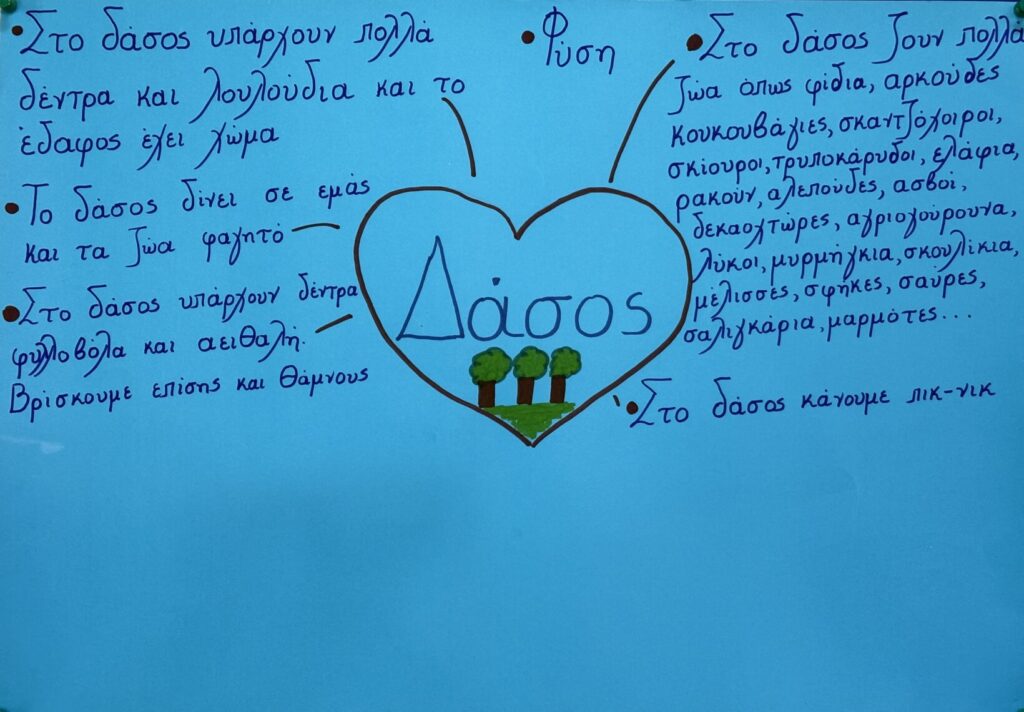 • Στο δάσος υπάρχουν πολλά
δέντρα και λουλούδια και το
έδαφος έχει χώμα
• Το δάσος δίνει σε εμάς
και τα ζώα φαγητό
• Στο δάσος υπάρχουν δέντρα
φυλλοβόλα και αειθαλή.
Βρίσκουμε επίσης και θάμνους
• Φύση
• Στο δάσος ζουν πολλά
ζώα όπως φίδια, αρκούδες
κουκουβάγιες, σκαντζόχοιροι,
σκίουροι, τρυποκάρυδοι, ελάφια,
ρακούν, αλεπούδες, ασβοί,
δεκαοχτώρες, αγριογούρουνα,
λύκοι, μυρμήγκια, σκουλίκια,
μέλισσες, σφήκες, σαύρες,
σαλιγκάρια, μαρμότες...
Δάσος
• Στο δάσος κάνουμε πικ-νικ